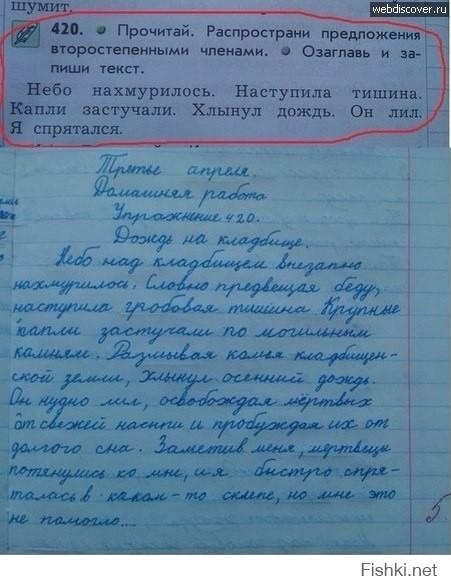 шумит.
webdiscover.ru
420. • Прочитай. Распространи предложения
второстепенными членами. • Озаглавь и за-
пиши текст.
Небо нахмурилось. Наступила тишина.
Капли застучали. Хлынул дождь. Он лил.
Я спрятался.
Третье апреля.
Домашняя работа
Упражнение 420.
Дождь на кладбище.
Небо над кладбищем внезапно
нахмурилось. Словно предвещая беду,
наступила гробовая тишина Крупные
капли застучали по могильным
камням. Размывая комья кладбищен-
ской земли, хлынул осенний дождь.
Он нудно лил, освобождая мёртвых
от свежей насыпи и пробуждая их от
долгого сна. Заметив меня, мертвецы
потянулись ко мне, и я быстро спря-
талась в каком-то склепе, но мне это
не помогло...
5
Fishki.net